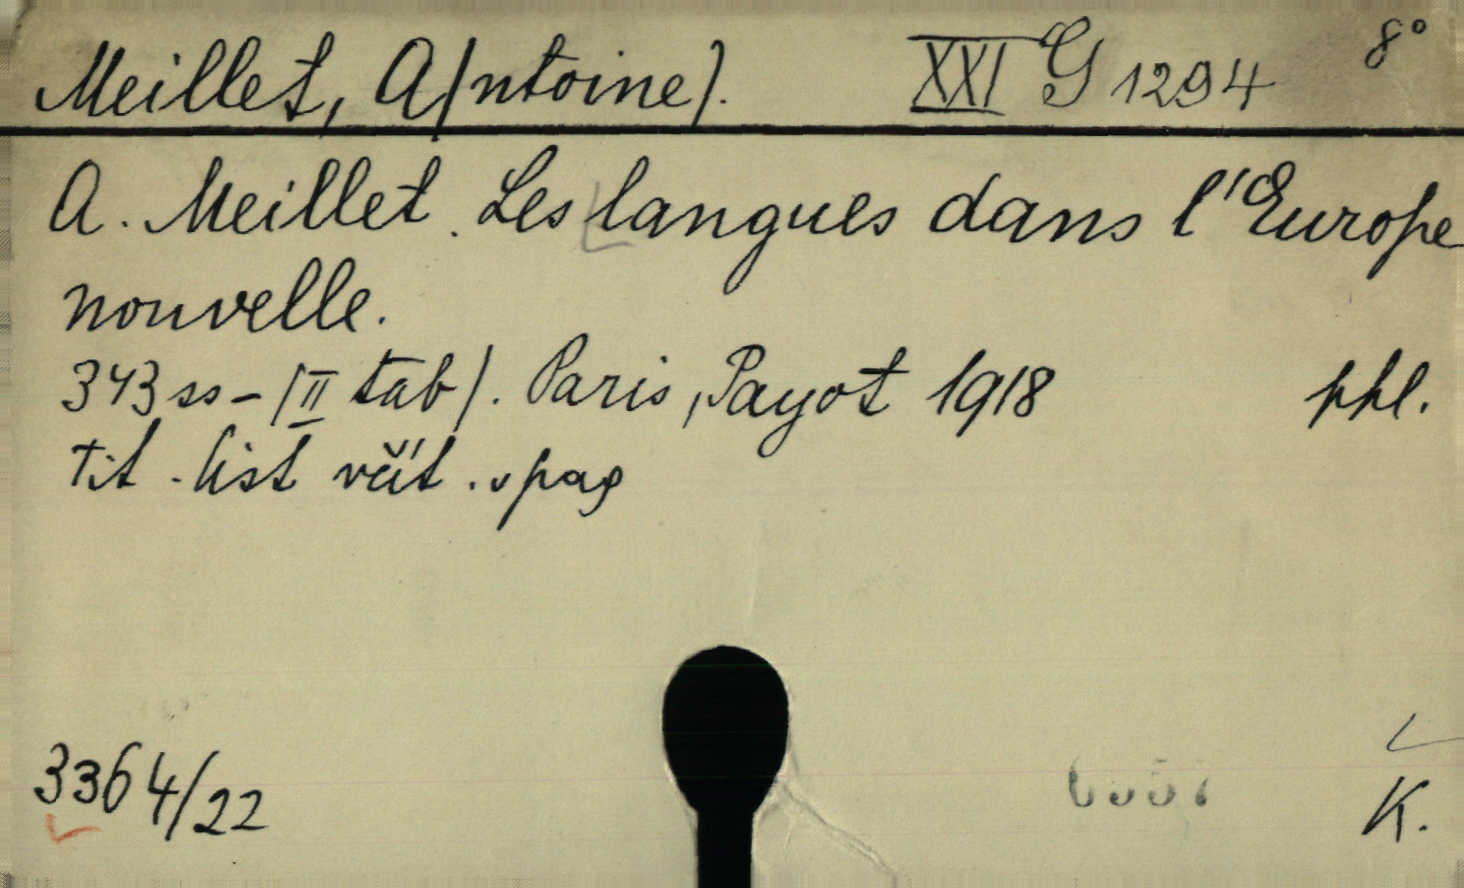 Meillet, A/ntoine/. XXI G 1294 8°
A. Meillet. Les langues dans l'Europe
nouvelle.
343 ss - /II tab/. Paris, Payot 1918 phl.
tit. list včít. v pag
3364/22
K.